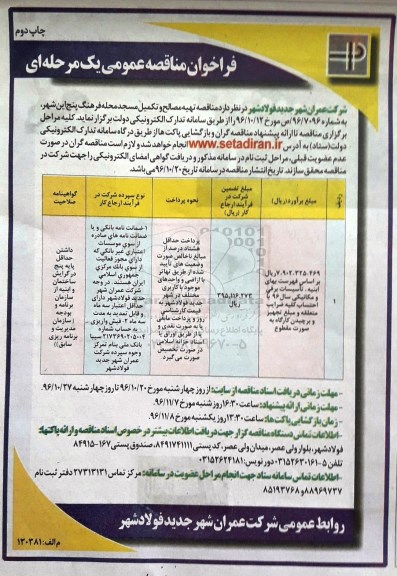 چاپ دوم
فراخوان مناقصه عمومی یک مرحله‌ای
شرکت عمران شهر جدید فولادشهر در نظر دارد مناقصه تهیه مصالح و تکمیل مسجد محله فرهنگ پنج این شهر،
به شماره ۹۶/۷۰۹۶/ص مورخ ۹۶/۱۰/۱۲ را از طریق سامانه تدارک الکترونیکی دولت برگزار نماید. کلیه مراحل
برگزاری مناقصه تا ارائه پیشنهاد مناقصه گران و بازگشایی پاکت ها از طریق درگاه سامانه تدارک الکترونیکی
دولت (ستاد) به آدرس www.setadiran.ir انجام خواهد شد و لازم است مناقصه گران در صورت
عدم عضویت قبلی، مراحل ثبت نام در سامانه مذکور و دریافت گواهی امضای الکترونیکی را جهت شرکت در
مناقصه محقق سازند. تاریخ انتشار مناقصه در سامانه تاریخ ۹۶/۱۰/۲۰ می باشد.
ردیف
مبلغ برآورد (ریال)
مبلغ تضمین شرکت در فرآیند ارجاع کار (ریال)
نحوه پرداخت
نوع سپرده شرکت در فرآیند ارجاع کار
گواهینامه صلاحیت
۱
۷,۹۰۲,۳۲۵,۴۶۹ ریال
بر اساس فهرست بهای
ابنیه، تأسیسات برقی
و مکانیکی سال ۹۶ با
احتساب کلیه ضرایب
متعلقه و مبلغ تجهیز
و برچیدن کارگاه به
صورت مقطوع
۳۹۵,۱۱۶,۲۷۳
ریال
پرداخت حداقل
هشتاد درصد از
مبالغ ناخالص صورت
وضعیت های تأیید
شده از طریق تهاتر
با اراضی و واحدهای
موجود با کاربری
مختلف در شهر
جدید فولادشهر با
قیمت کارشناسی
روز و پرداخت مابقی
یا به صورت نقدی و
یا از طریق اوراق یا
اسناد خزانه اسلامی
در صورت تخصیص
صورت می گیرد.
۱-ضمانت نامه بانکی و یا
ضمانت نامه های صادره
از سوی موسسات
اعتباری غیر بانکی که
دارای مجوز فعالیت
از سوی بانک مرکزی
جمهوری اسلامی
ایران هستند، در وجه
شرکت عمران شهر
جدید فولادشهر دارای
حداقل اعتبار سه ماهه
و قابل تمدید به مدت
سه ماه ۲- فیش واریزی
به حساب شماره
بانک ملی بنام تمرکز
وجوه سپرده شرکت
عمران شهر جدید
فولادشهر
داشتن
حداقل
پایه پنج
در گرایش
ساختمان
و ابنیه از
سازمان
برنامه و
بودجه
(سازمان
مدیریت و
برنامه ریزی
سابق)
-مهلت زمانی دریافت اسناد مناقصه از سایت: از روز چهارشنبه مورخ ۹۶/۱۰/۲۰ تا روز چهارشنبه ۹۶/۱۰/۲۷.
-مهلت زمانی ارائه پیشنهاد: ساعت ۱۶:۳۰ روز شنبه مورخ ۹۶/۱۱/۷.
-زمان بازگشایی پاکت ها: ساعت ۱۳:۳۰ روز یکشنبه مورخ ۹۶/۱۱/۸.
-اطلاعات تماس دستگاه مناقصه گزار جهت دریافت اطلاعات بیشتر در خصوص اسناد مناقصه و ارائه پاکتها:
فولادشهر، بلوار ولی عصر، میدان ولی عصر، کد پستی ۸۴۹۱۷۴۱۱۱۱، صندوق پستی ۱۶۷-۸۴۹۱۵
تلفن ۵-۰۳۱۵۲۶۳۰۱۶۱ دورنویس: ۰۳۱۵۲۶۲۴۱۸۱
-اطلاعات تماس سامانه ستاد جهت انجام مراحل عضویت در سامانه: مرکز تماس ۲۷۳۱۳۱۳۱ دفتر ثبت نام
۸۸۹۶۹۷۳۷ و ۸۵۱۹۳۷۶۸
روابط عمومی شرکت عمران شهر جدید فولادشهر
م الف: ۱۳۰۳۸۱